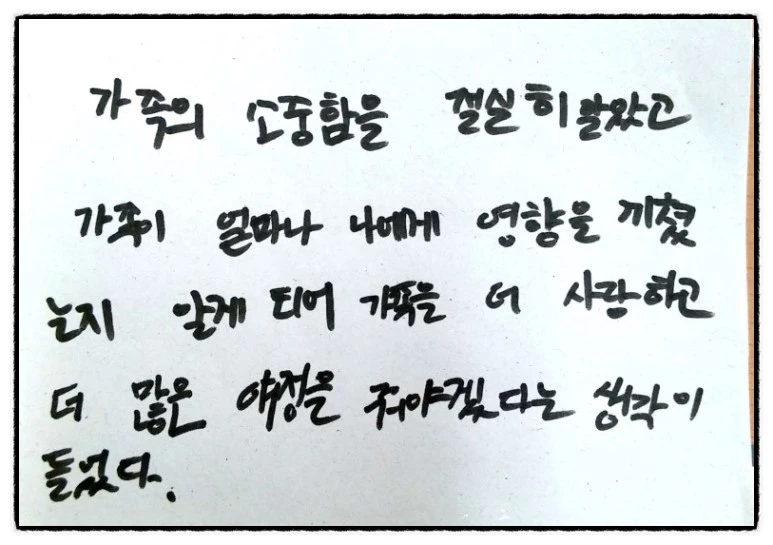 가족의 소중함을 절실히 알았고
가족이 얼마나 나에게 영향을 끼쳤
는지 알게 되어 가족을 더 사랑하고
더 많은 애정을 줘야겠다는 생각이
들었다.